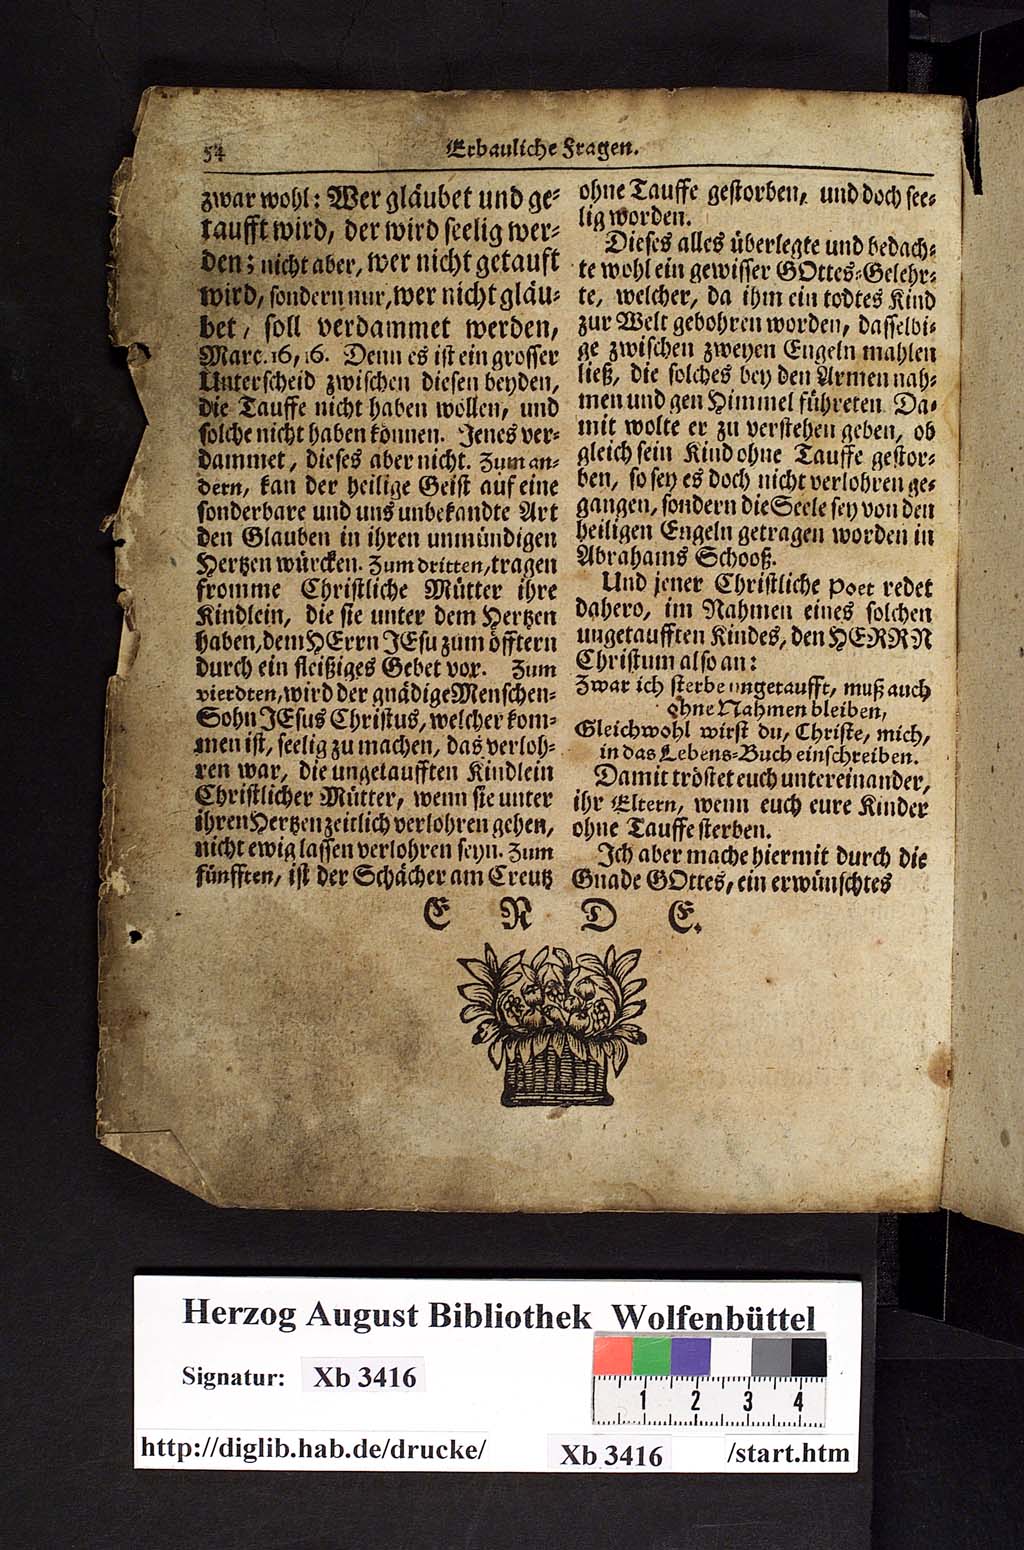 54
Erbauliche Fragen.
zwar wohl: Wer gläubet und ge-
taufft wird, der wird seelig wer-
den; nicht aber, wer nicht getauft
wird, sondern nur, wer nicht gläu-
bet, soll verdammet werden,
Marc. 16, 16. Denn es ist ein grosser
Unterscheid zwischen diesen beyden,
die Tauffe nicht haben wollen, und
solche nicht haben können. Jenes ver-
dammet, dieses aber nicht. Zum an-
dern, kan der heilige Geist auf eine
sonderbare und uns unbekandte Art
den Glauben in ihren unmündigen
Hertzen würcken. Zum dritten, tragen
fromme Christliche Mütter ihre
Kindlein, die sie unter dem Hertzen
haben, dem HErrn JEsu zum öfftern
durch ein fleißiges Gebet vor. Zum
vierdten, wird der gnädige Menschen-
Sohn JEsus Christus, welcher kom-
men ist, seelig zu machen, das verloh-
ren war, die ungetaufften Kindlein
Christlicher Mütter, wenn sie unter
ihren Hertzen zeitlich verlohren gehen,
nicht ewig lassen verlohren seyn. Zum
fünfften, ist der Schächer am Creutz
ohne Tauffe gestorben, und doch see-
lig worden.
Dieses alles überlegte und bedach-
te wohl ein gewisser GOttes-Gelehr-
te, welcher, da ihm ein todtes Kind
zur Welt gebohren worden, dasselbi-
ge zwischen zweyen Engeln mahlen
ließ, die solches bey den Armen nah-
men und gen Himmel führeten Da-
mit wolte er zu verstehen geben, ob
gleich sein Kind ohne Tauffe gestor-
ben, so sey es doch nicht verlohren ge-
gangen, sondern die Seele sey von den
heiligen Engeln getragen worden in
Abrahams Schooß.
Und jener Christliche Poet redet
dahero, im Nahmen eines solchen
ungetaufften Kindes, den HERRN
Christum also an:
Zwar ich sterbe ungetaufft, muß auch
ohne Nahmen bleiben,
Gleichwohl wirst du, Christe, mich,
in das Lebens-Buch einschreiben.
Damit tröstet euch untereinander,
ihr Eltern, wenn euch eure Kinder
ohne Tauffe sterben.
Ich aber mache hiermit durch die
Gnade GOttes, ein erwünschtes
E N D E.
Herzog August Bibliothek Wolfenbüttel
Signatur: Xb 3416
1 2 3 4
http://diglib.hab.de/drucke/ Xb 3416 /start.htm